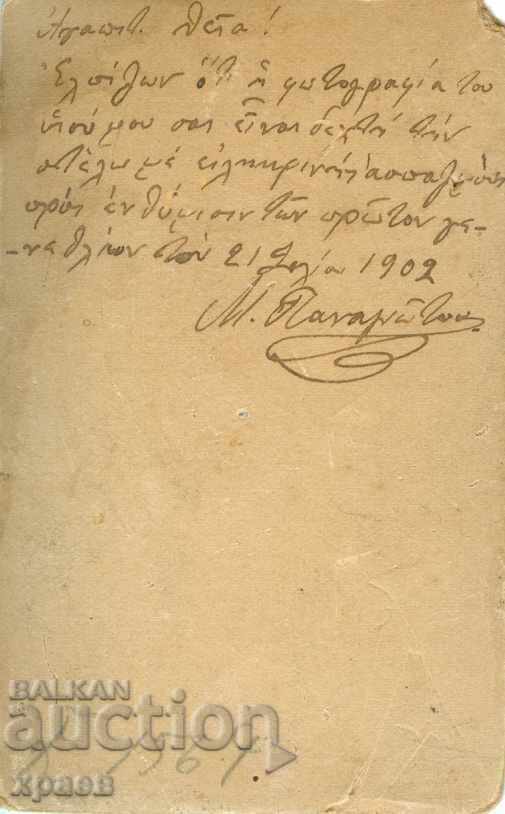 Ἀγαπητ. θεία!
Ἐλπίζων ὅτι ἡ φωτογραφία του
υἱοῦ μου σας εἶναι δεχτή τήν
στέλω μέ εἰλικρινεῖς ἀσπασμούς
πρός ἐνθύμισιν τῶν πρῶτον γε-
-νεθλίων τοῦ 21 Ἰουλίου 1902
Μ. Παναγιώτου
BALKAN
auction
храев